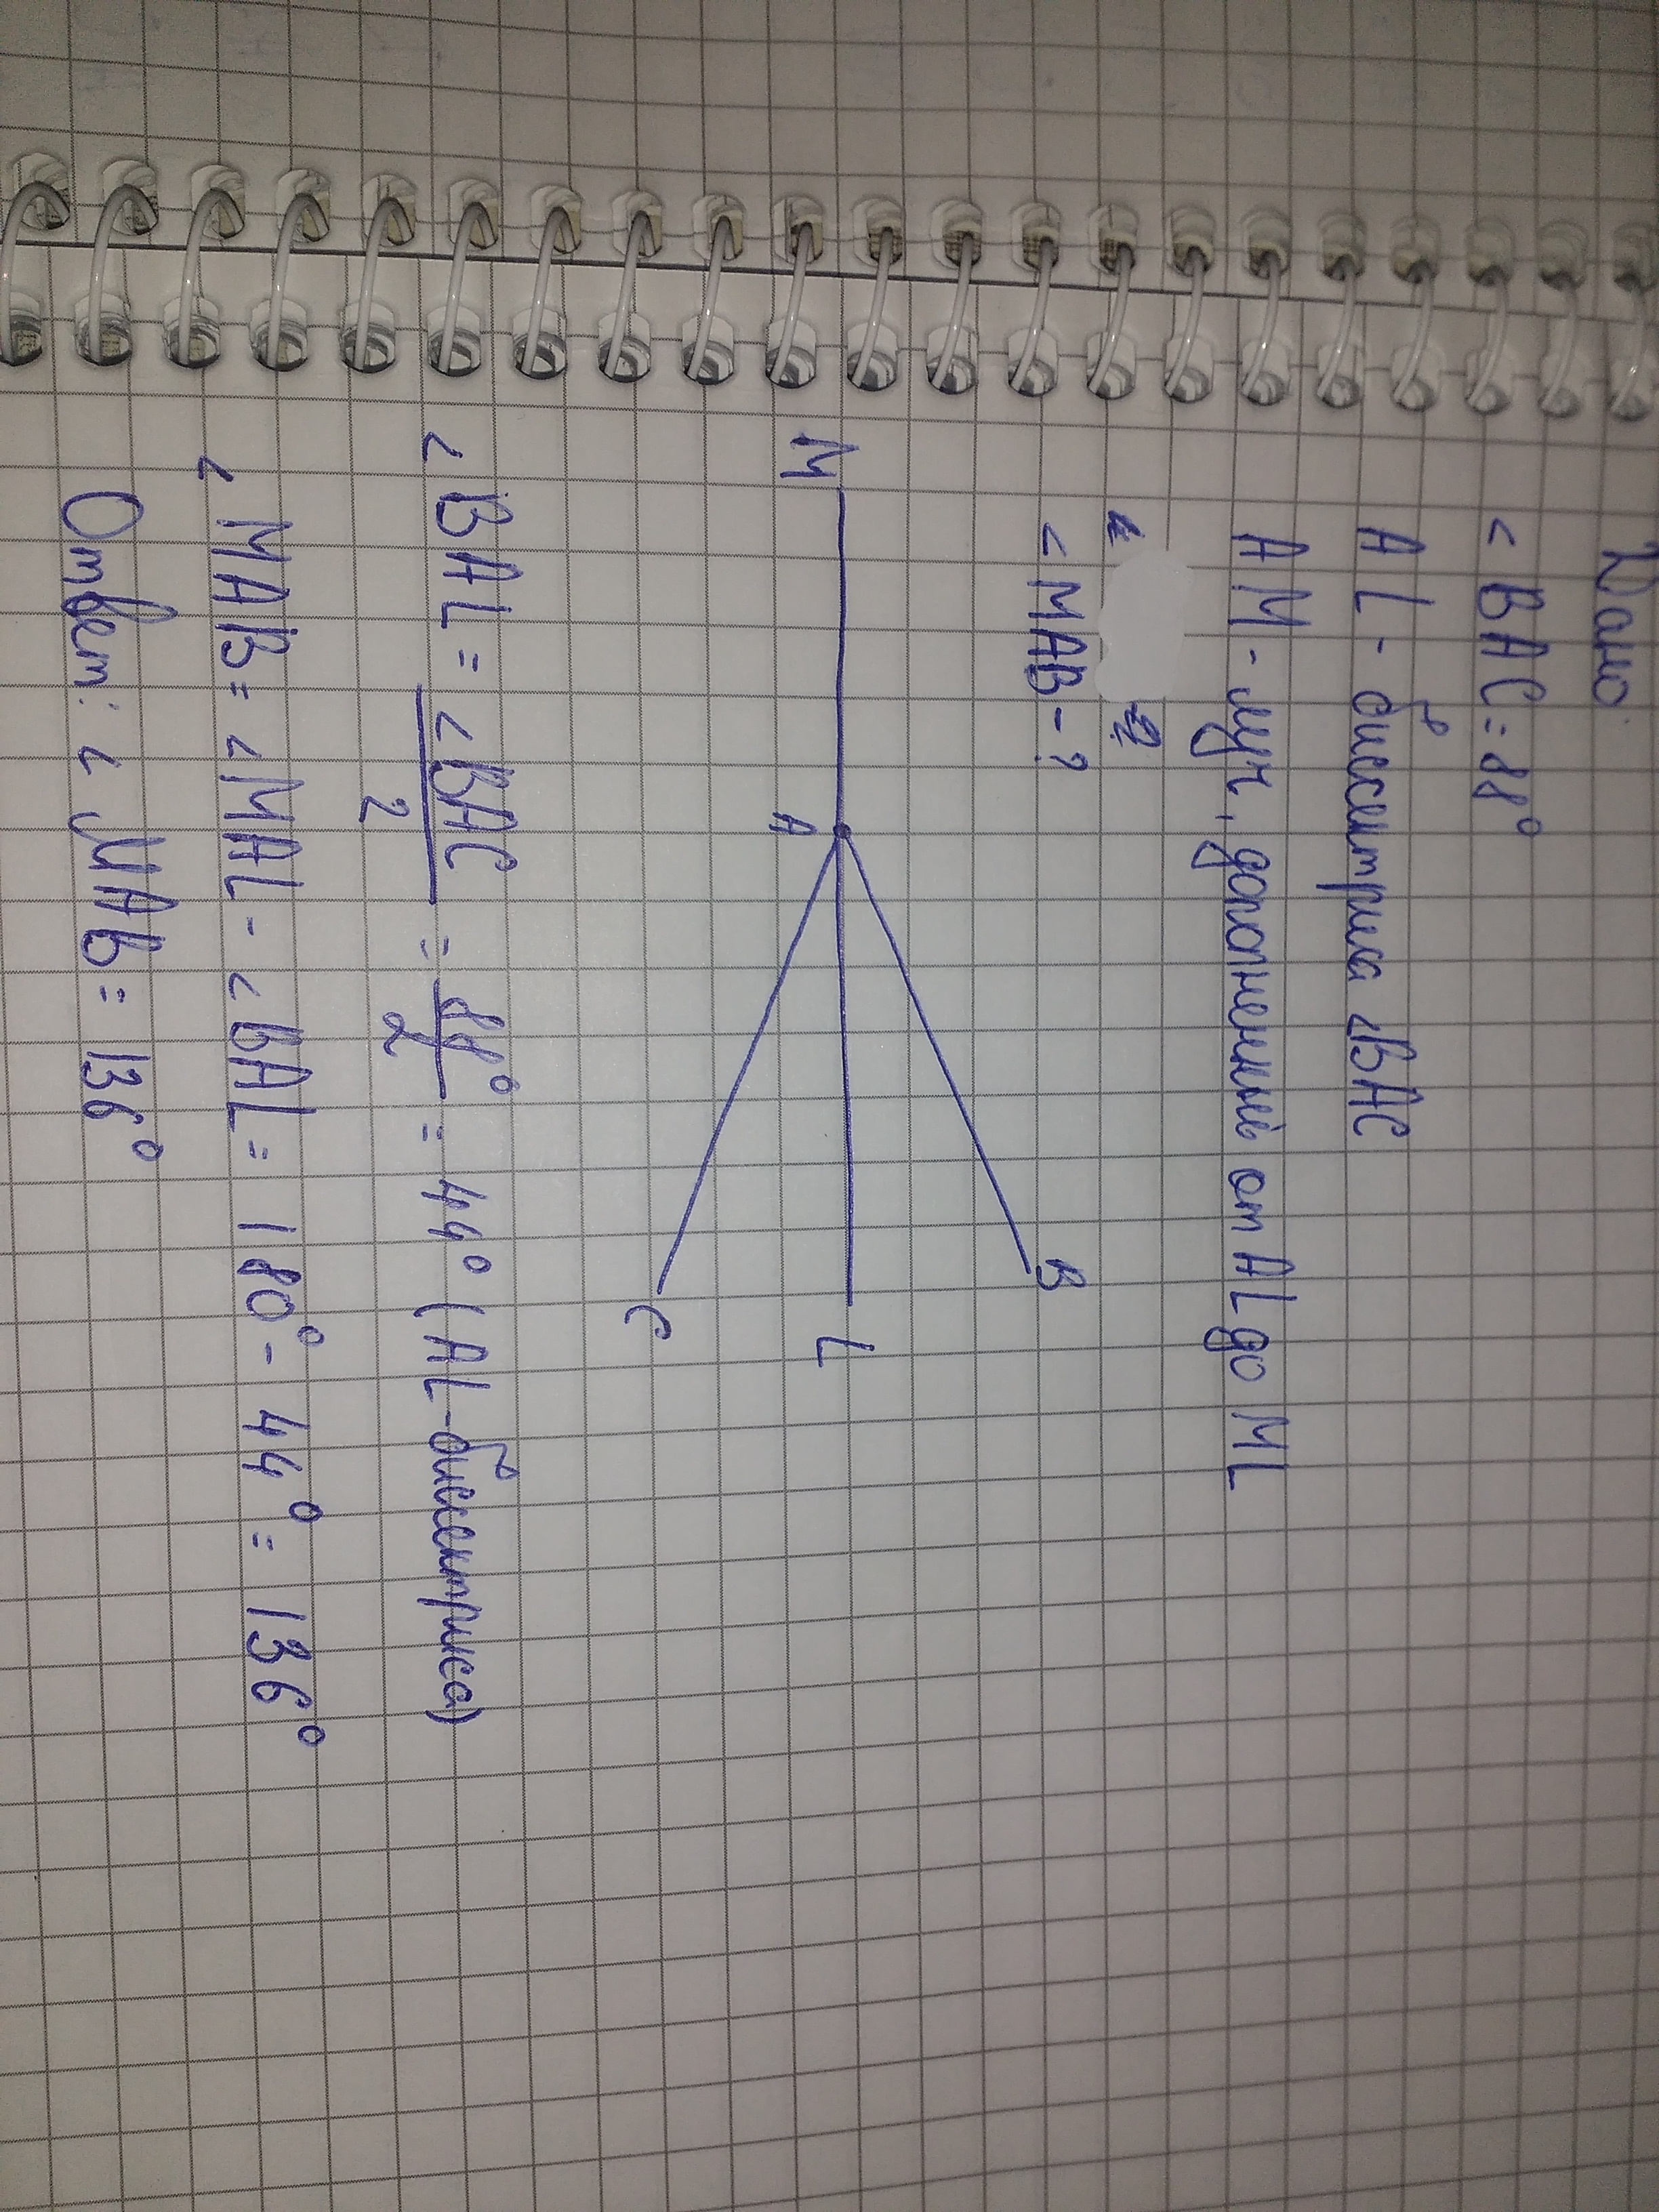 Дано:
< BAC = 88°
AL - биссектриса <BAC
AM - луч, дополненный от AL до ML
< MAB - ?
M
A
B
L
C
< BAL = <BAC/2 = 88°/2 = 44° (AL - биссектриса)
< MAB = <MAL - <BAL = 180° - 44° = 136°
Ответ: < MAB = 136°